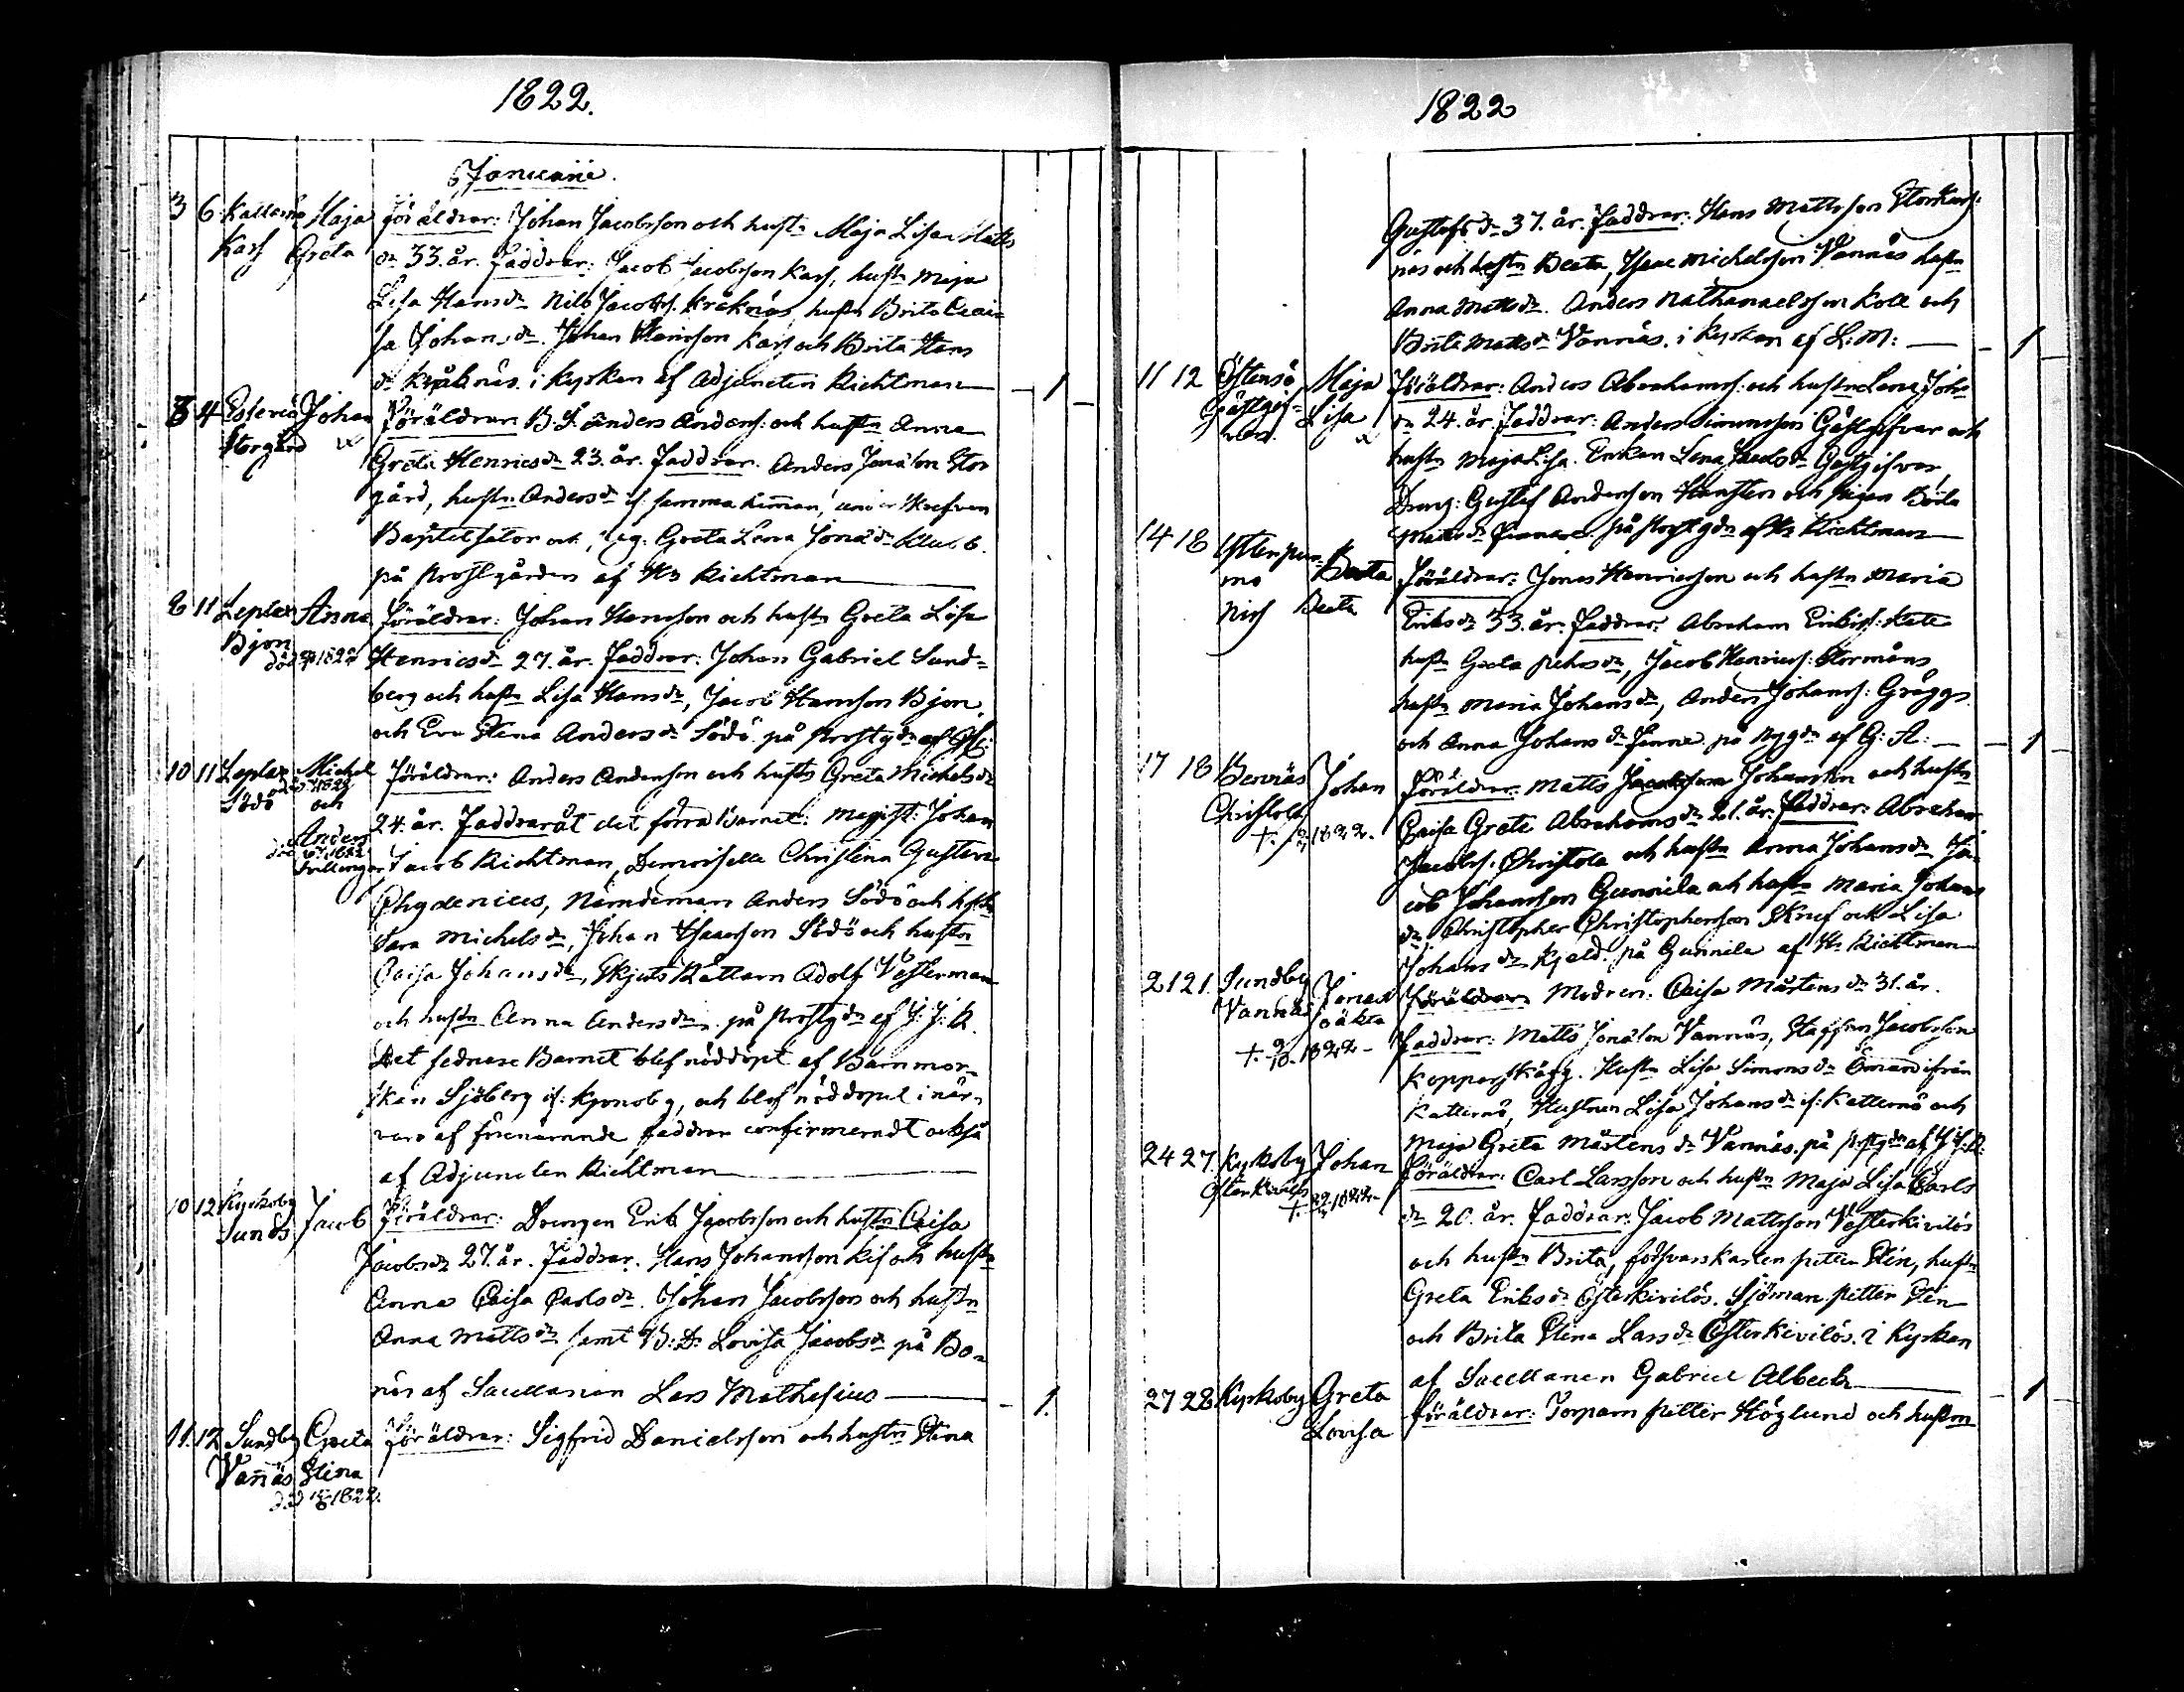 1822.
Januarii.
3 6 Katternö Maja Föräldrar: Johan Jacobsson och hust: Maja Lisa Matts
Karf Greta dr 33. år. Faddrar: Jacob Jacobsson Karf, hustr Maja
Lisa Hans dr Nils Jacobss. Kråknäs, hustr Brita Cai-
sa Johans dr. Johan Hansson Karf och Brita Hans
dr Kråknäs. i Kyrkan af Adjuncten Richtman — 1
3 4 Esternä Johan Föräldrar B. S. Anders Anderss: och hustr Anna
Storgård Greta Henrics dr 23. år. Faddrar. Anders Jonæson Stor
gård, hustr Anders dr if. samma hemman,
Baptelsator och pig. Greta Lena Jonæ dr Klubb.
på Prostgården af Hr Richtman
8 11 Leplax Anna Föräldrar: Johan Hansson och hustr Greta Lisa
Bjon Henrics dr 27. år. Faddrar: Johan Gabriel Sund-
död 1822 berg och hustr Lisa Hans dr, Jacob Hansson Bjon,
och Eva Stena Anders dr Södö. på Prostgdn af
10 11 Leplax Michel Föräldrar: Anders Andersson och hustr Greta Michels dr
Södö död 1822 och 24. år. Faddrar åt det förra Barnet: Magist: Johan
Anders död 1822 Tvillingar Jacob Richtman, Demoiselle Christina Gustava
Chydenius, Nämdeman Anders Södö och hustr
Sara Michels dr, Johan Isaacson Södö och hustr
Caisa Johans dr, Skjuts Rättarn Adolf Vesterman
och hustr Anna Anders dr. på Prostgdn af J. J. R.
Det sednare Barnet blef nöddöpt af Barnmor-
skan Sjöberg if: Kronoby, och blef nöddopet i när-
varo af förenämnde faddrar confirmeradt också
af Adjuncten Richtman
10 12 Kyrkoby Jacob Föräldrar: Drengen Erik Jacobsson och hustr Caisa
Sunds Jacobs dr 27. år. Faddrar. Hans Johansson Kif och hustr
Anna Caisa Carls dr. Johan Jacobsson och hustr
Anna Matts dr samt B: D: Lovisa Jacobs dr på Bo-
näs af Sacellanen Lars Mathesius — 1.
11. 12 Sundby Greta Föräldrar: Sigfrid Danielsson och hustr Stina
Vannäs Stina
död 1822.
1822
Gustafs dr 37. år. Faddrar: Hans Mattsson Storkars-
näs och hustr Beata, Isaac Michelsson Vannäs hustr
Anna Matts dr. Anders Nathanaelsson Koll och
Brita Matts dr Vannäs. i Kyrkan af L: M: — 1
11 12 Östensö Maja Föräldrar: Anders Abrahamss: och hustr Lena Johs
Gästgif- Lisa dr 24. år. Faddrar: Anders Simonsson Gästgifvar och
vars. hustr Maja Lisa. Enkan Lena Jacobs dr Gästgifvar,
Dreng: Gustaf Andersson Hansten och pigan Brita
Matts dr Finnare. på Prostgdn af Hr Richtman
14 18 Ytterpur- Beata Föräldrar: Jonas Henricsson och hustr Maria
mo Beata Eriks dr 33. år. Faddrar: Abraham Erikss: Kate
Nirs hustr Greta Pehrs dr, Jacob Henrics: Stormåns
hustr Maria Johans dr, Anders Johanss: Gräggs.
och Anna Johans dr Finne. på Nygdn af G: A: — 1
17 18 Bennäs Johan Föräldrar: Matts Jacobsson Johansson och hustr
Christola Caisa Greta Abrahams dr 21. år. Faddrar: Abraham
†. 1822. Jacobs: Christola och hustr Anna Johans dr Ja-
cob Johansson Gunnila och hustr Maria Johans
dr, Christopher Christophersson Skruf och Lisa
Johans dr Kjeld. på Gunnila af Hr Richtman
21 21. Sundby Jonas Föräldrar Modren: Caisa Mårtens dr 31. år.
Vannäs oäkta Faddrar: Matts Jonæson Vannäs, Staffan Jacobsson
†. 1822 - Kopparskägg. Hustr Lisa Simons dr Öman ifrån
Katternö, Hustrun Lisa Johans dr if: Katternö och
Maja Greta Mårtens dr Vannäs. på Prostgdn af J: J: R:
24 27. Kyrkoby Johan Föräldrar: Carl Larsson och hustr Maja Lisa Carls
Österkivilös dr 20. år. Faddrar: Jacob Mattsson Vesterkivilös
†. 1822 - och hustr Brita, Petter Sten, hustr
Greta Eriks dr Österkivilös. Sjöman Petter Sten
och Brita Stina Lars dr Österkivilös. i Kyrkan
af Sacellanen Gabriel Albeck — 1
27 28 Kyrkoby Greta Föräldrar: Torparn Petter Höglund och hustrn
Lovisa